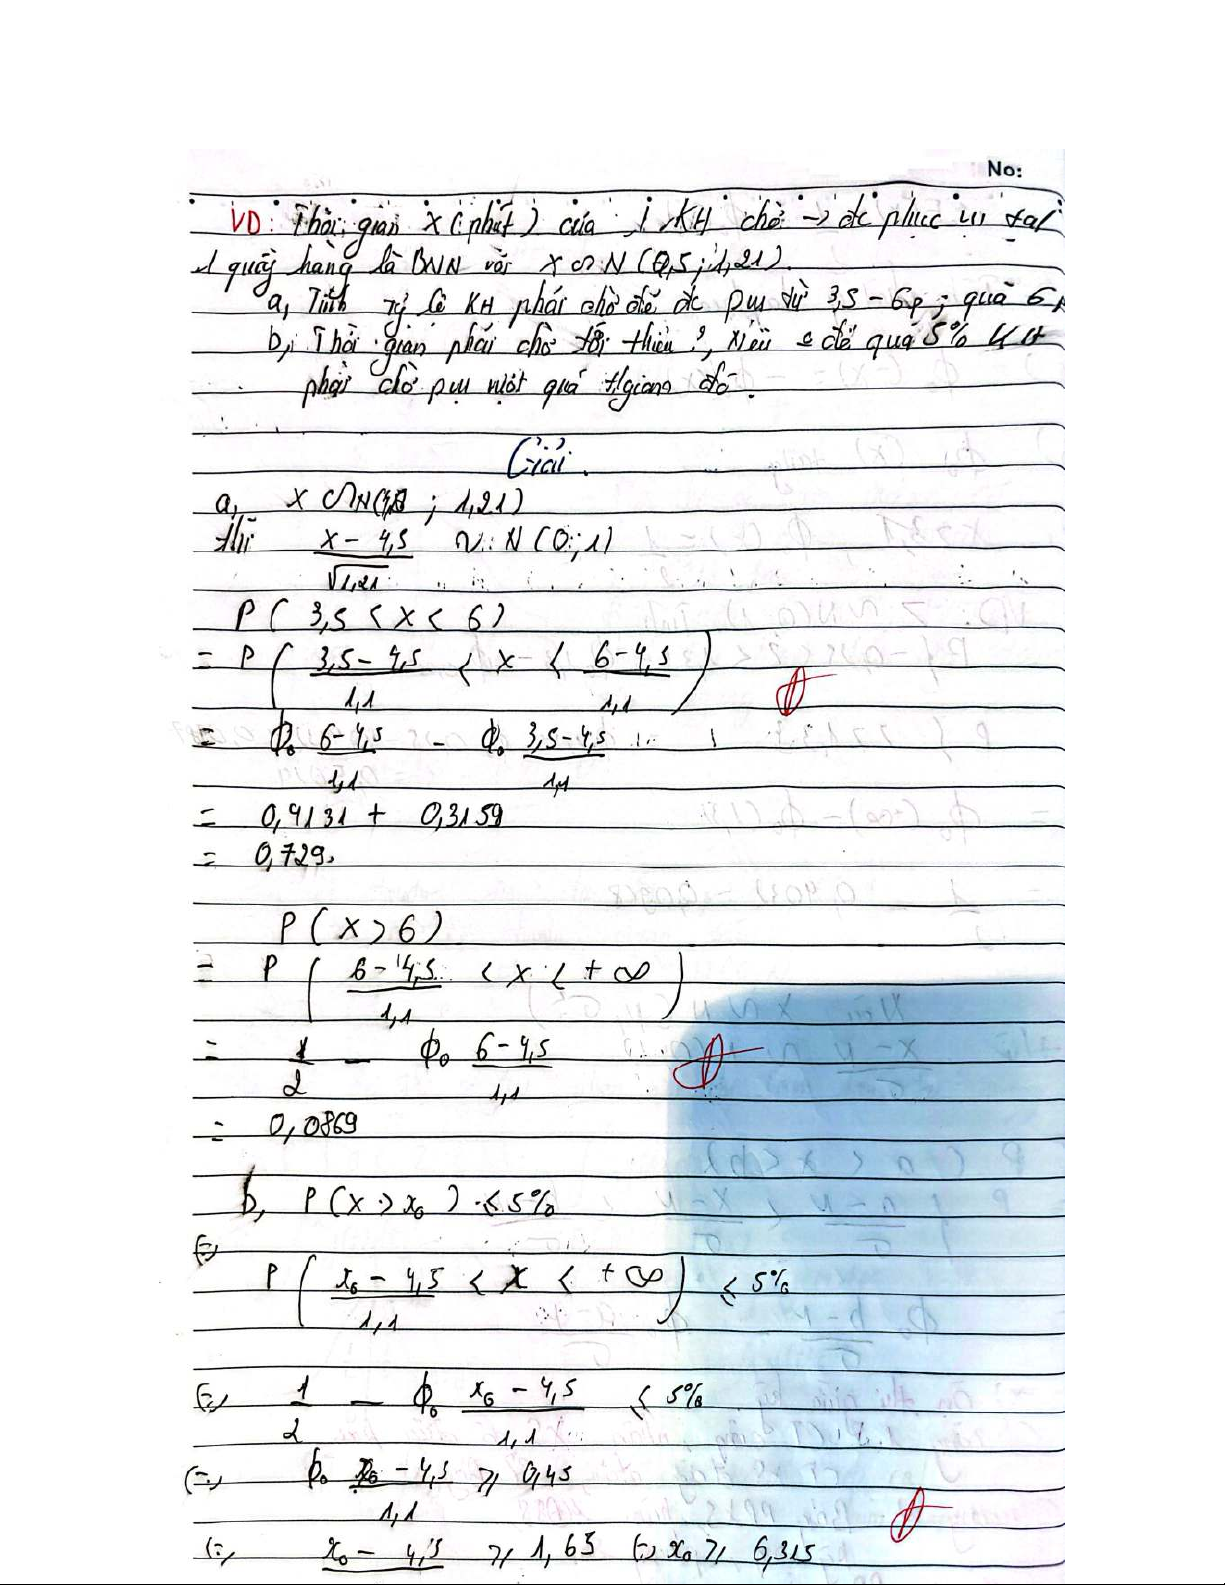 No:
VD: Thời gian X (phút) của 1 KH chờ → đc phục vụ tại
1 quầy hàng là BNN với X ∽ N (4,5 ; 1,21).
a, Tính tỷ lệ KH phải chờ để đc pvụ từ 3,5 - 6p ; quá 6p
b, Thời gian phải chờ tối thiểu ?, để quá 5% KH
phải chờ pvụ vượt quá tgian đó.
Giải.
a, X ∽ N( ; 1,21)
thì X - 4,5 / √1,21 ∼ N (0 ; 1)
P ( 3,5 < X < 6 )
= P ( 3,5 - 4,5 / 1,1 < X < 6 - 4,5 / 1,1 )
= ϕ₀ 6 - 4,5 / 1,1 - ϕ₀ 3,5 - 4,5 / 1,1
= 0,4131 + 0,3159
= 0,729.
P ( X > 6 )
= P ( 6 - 4,5 / 1,1 < X < + ∞ )
= 1/2 - ϕ₀ 6 - 4,5 / 1,1
= 0,0869
b, P ( X > x₀ ) ≤ 5%
(=) P ( x₀ - 4,5 / 1,1 < X < + ∞ ) ≤ 5%
(=) 1/2 - ϕ₀ x₀ - 4,5 / 1,1 ≤ 5%
(=) ϕ₀ x₀ - 4,5 / 1,1 ≥ 0,45
(=) x₀ - 4,5 ≥ 1,65 (=) x₀ ≥ 6,315